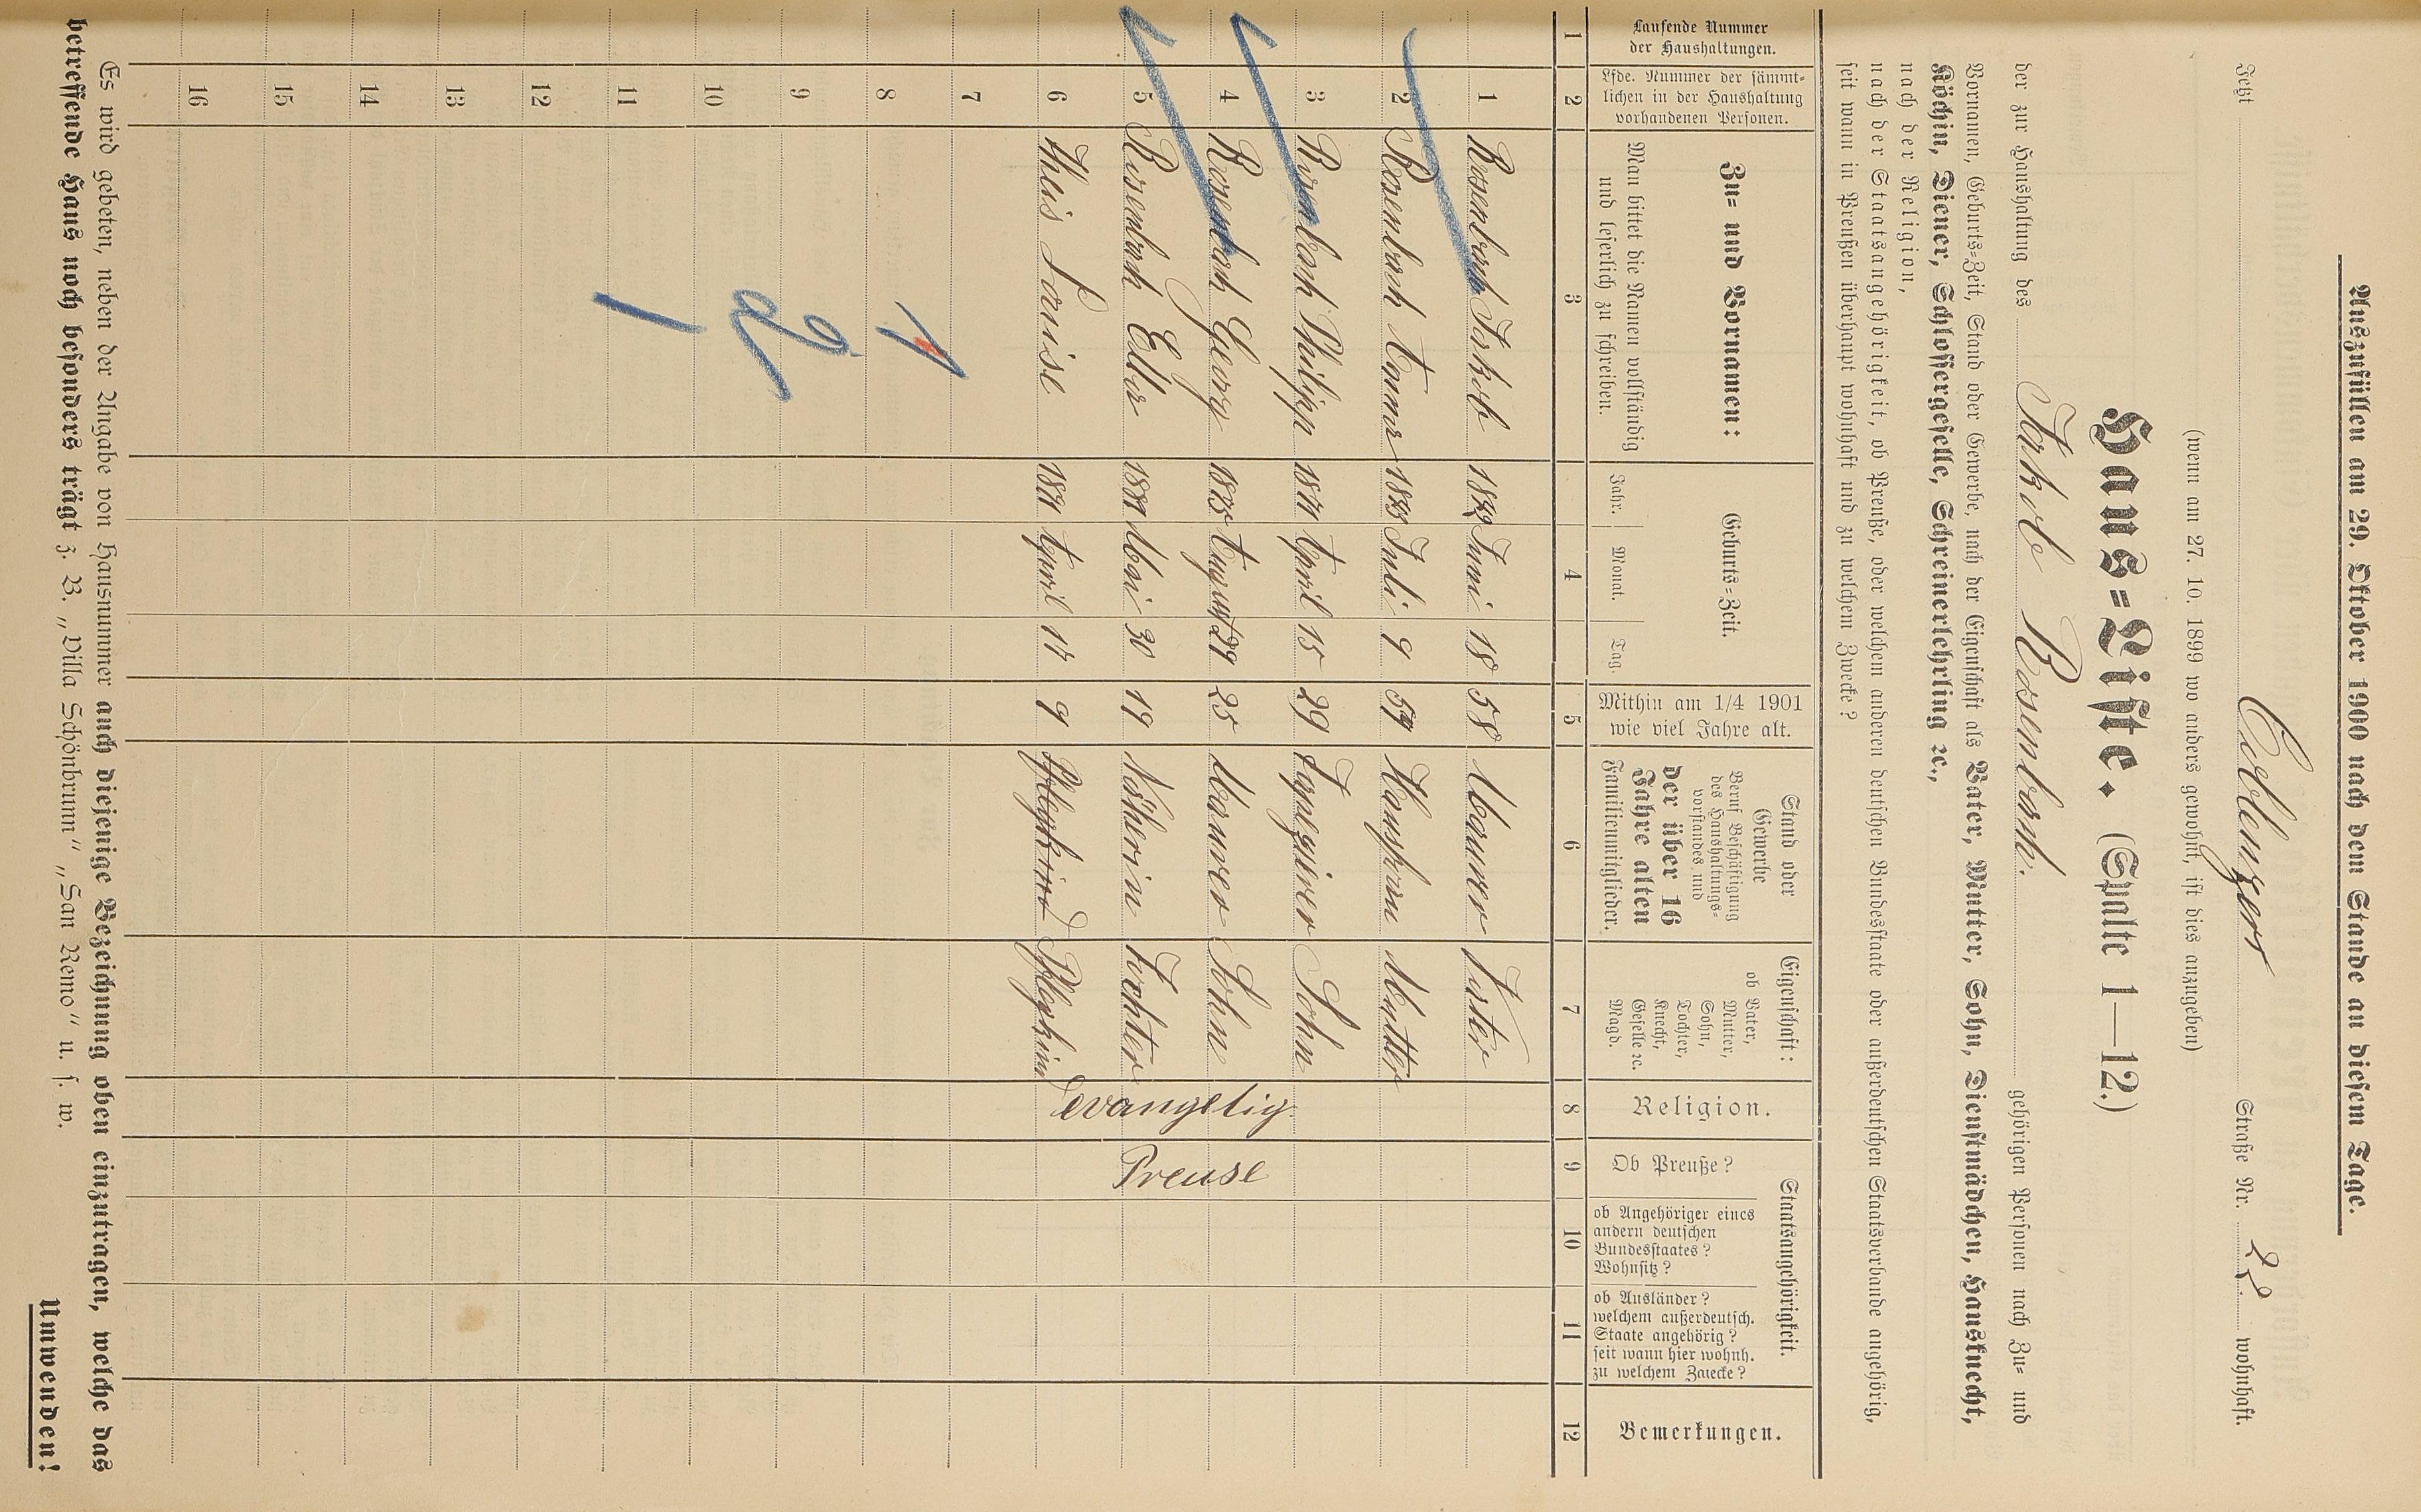 Auszufüllen am 29. Oktober 1900 nach dem Stande an diesem Tage.
Jetzt Coblenzer Straße Nr. 22 wohnhaft.
(wenn am 27. 10. 1899 wo anders gewohnt, ist dies anzugeben)
Haus=Liste. (Spalte 1—12.)
der zur Haushaltung des Jakob Rosenbach. gehörigen Personen nach Zu= und
Vornamen, Geburts=Zeit, Stand oder Gewerbe, nach der Eigenschaft als Vater, Mutter, Sohn, Dienstmädchen, Hausknecht,
Köchin, Diener, Schlossergeselle, Schreinerlehrling ꝛc.,
nach der Religion,
nach der Staatsangehörigkeit, ob Preuße, oder welchem anderen deutschen Bundesstaate oder außerdeutschen Staatsverbande angehörig,
seit wann in Preußen überhaupt wohnhaft und zu welchem Zwecke?
Laufende Nummer
der Haushaltungen.
Lfde. Nummer der sämmt=
lichen in der Haushaltung
vorhandenen Personen.
Zu= und Vornamen:
Man bittet die Namen vollständig
und leserlich zu schreiben.
Geburts=Zeit.
Jahr. Monat. Tag.
Mithin am 1/4 1901
wie viel Jahre alt.
Stand oder
Gewerbe
Beruf Beschäftigung
des Haushaltungs=
vorstandes und
der über 16
Jahre alten
Familienmitglieder.
Eigenschaft:
ob Vater,
Mutter,
Sohn,
Tochter,
Knecht,
Geselle ꝛc.
Magd.
Religion.
Staatsangehörigkeit.
Ob Preuße?
ob Angehöriger eines
andern deutschen
Bundesstaates?
Wohnsitz?
ob Ausländer?
welchem außerdeutsch.
Staate angehörig?
seit wann hier wohnh.
zu welchem Zwecke?
Bemerkungen.
1 2 3 4 5 6 7 8 9 10 11 12
1 Rosenbach Jakob Juni 18 58 Maurer Vater
2 Rosenbach Anna Juli 9 57 Hausfrau Mutter
3 Rosenbach Philipp 1871 April 15 29 Tapezirer Sohn
4 Rosenbach Georg 1875 August 29 25 Maurer Sohn
5 Rosenbach Ella Mai 30 19 Näherin Tochter
6 Louise April 17 9 Pflegkind Pflegkind
evangelig.
Preuse
7
8
1
9
2
10
11
12
13
14
15
16
Es wird gebeten, neben der Angabe von Hausnummer auch diejenige Bezeichnung oben einzutragen, welche das
betreffende Haus noch besonders trägt z. B. „Villa Schönbrunn“ „San Remo“ u. s. w.
Umwenden!